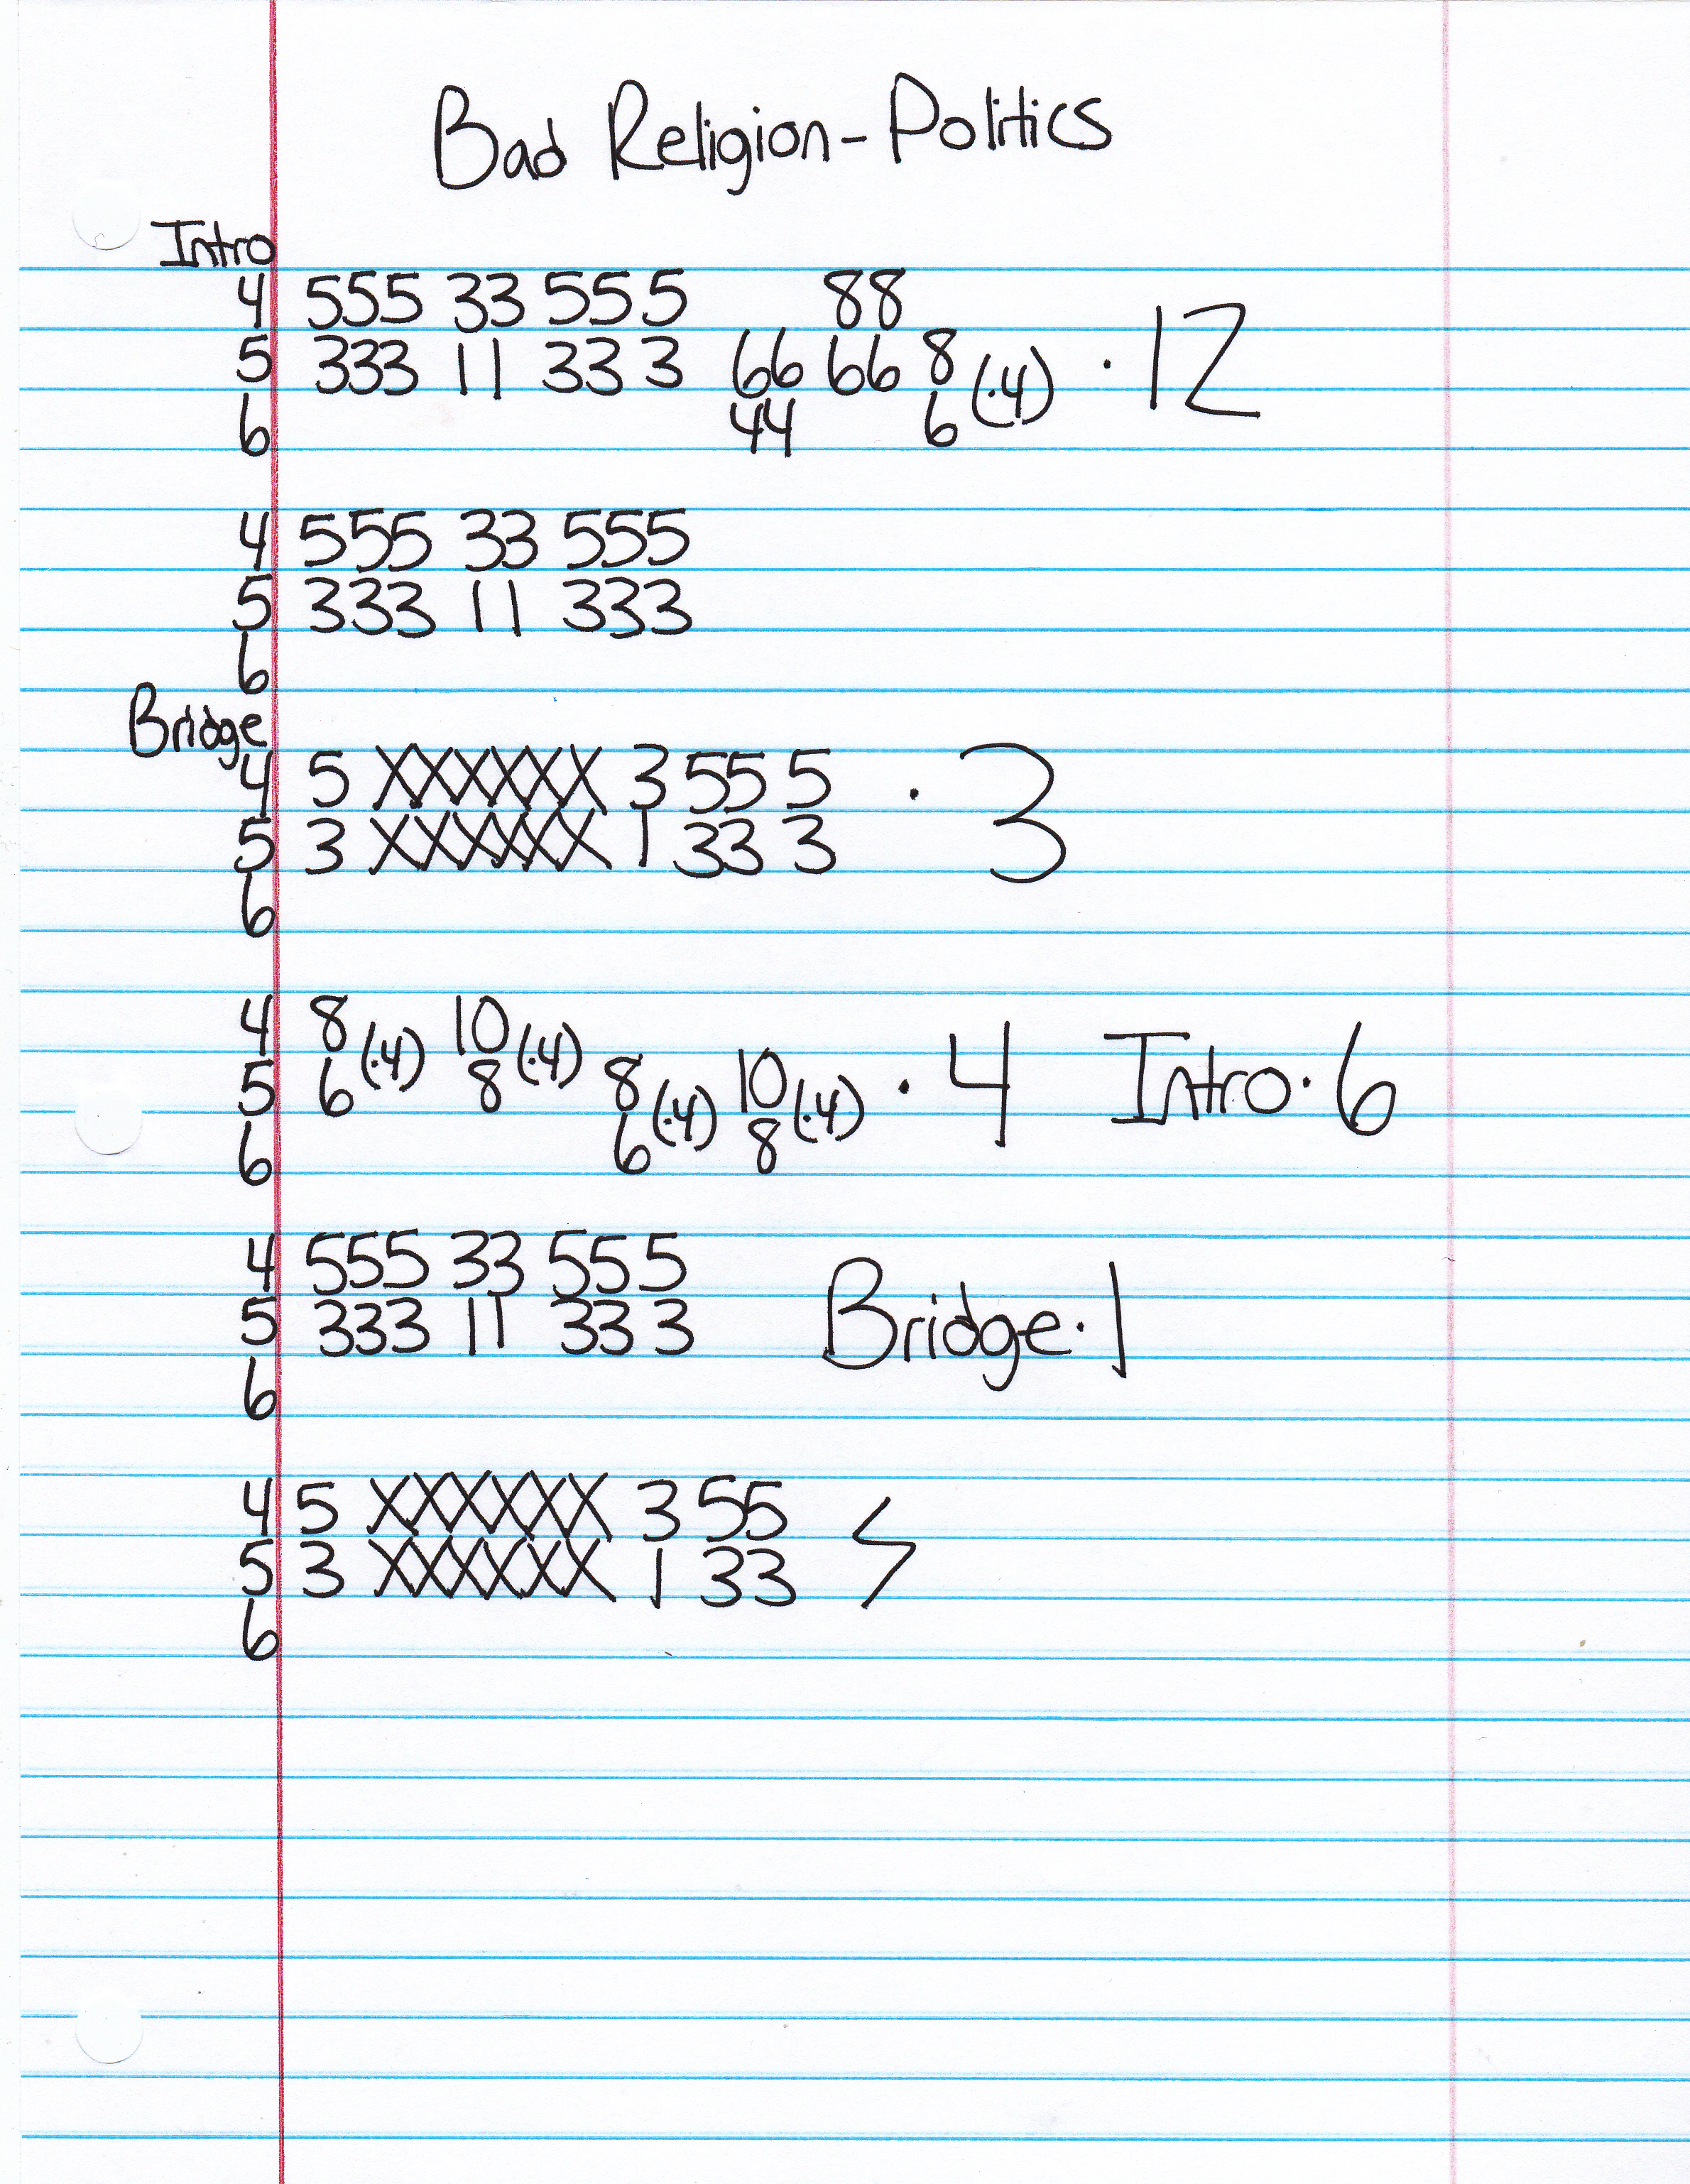 Bad Religion-Politics
Intro
4 555 33 555 5 88
5 333 11 33 3 66 66 8 (·4) · 12
6 44 6
4 555 33 555
5 333 11 333
6
Bridge
4 5 XXXXXX 3 55 5 · 3
5 3 XXXXXX 1 33 3
6
4 8 (·4) 10 (·4)
5 6 8 8 (·4) 10 (·4) · 4 Intro · 6
6 6 8
4 555 33 55 5
5 333 11 33 3 Bridge · 1
6
4 5 XXXXXX 3 55
5 3 XXXXXX 1 33
6